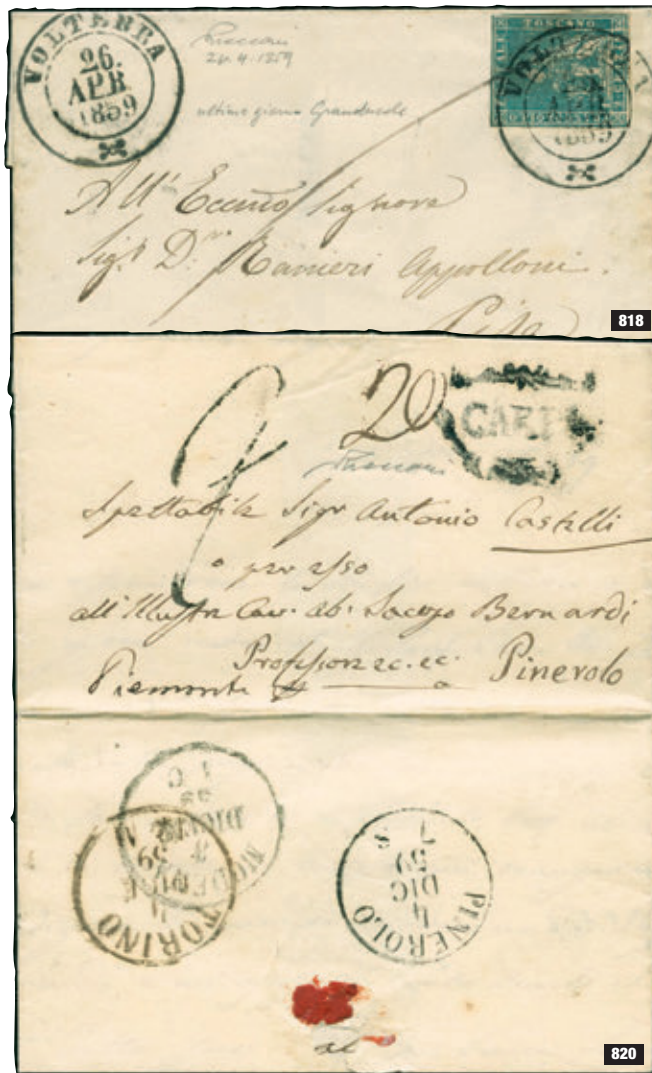 VOLTERRA
26.
APR
1859
26.4.1859
ultimo giorno Granducale
TOSCANO
VOLTERRA
1859
All' Eccmo Signore
Sigr Dre Ranieri Appolloni.
Pisa
818
20
CARPI
Spettabile Sigr Antonio Castelli
o per esso
all'Illustre Cav. ab. Jacopo Bernardi
Professore ec. ec. Pinerolo
Piemonte
MODENA
DICE
59
TORINO
4
59
PINEROLO
4
DIC
59
820